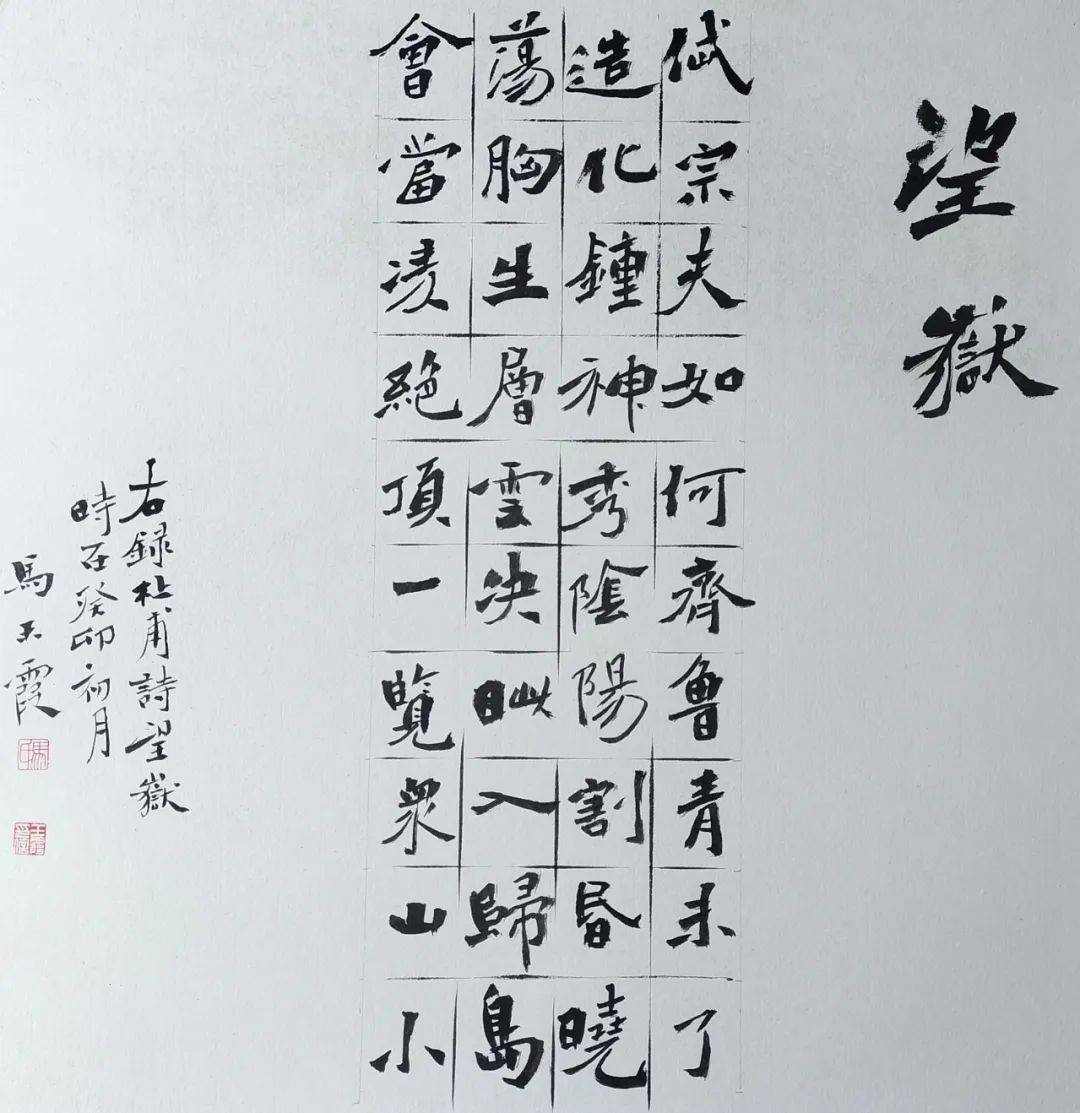 望嶽
岱宗夫如何齊魯青未了
造化鍾神秀陰陽割昏曉
蕩胸生層雲決眦入歸島
會當凌絕頂一覽衆山小
右録杜甫詩望嶽
時在癸卯初月
馬玉霞